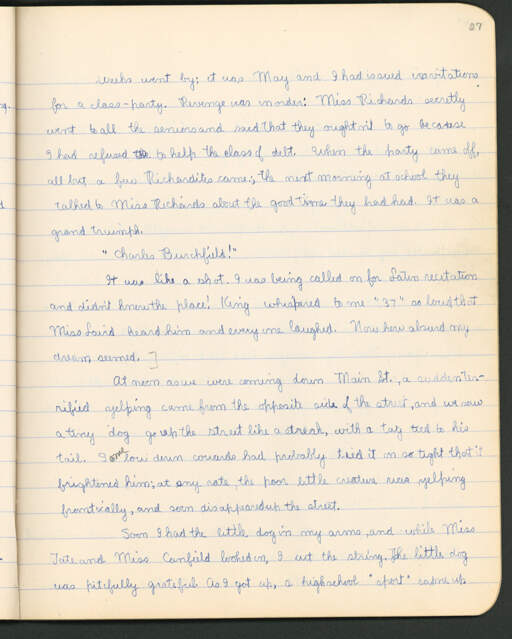 27
Weeks went by; it was May and I had issued invitations
for a class-party. Revenge was in order: Miss Richards secretly
went to all the seniors and said that they oughtn't to go because
I had refused to help the class of debt. When the party came off,
all but a few Richardites came; the next morning at school they
talked to Miss Richards about the good time they had had. It was a
grand triumph.
"Charles Burchfield!"
It was like a shot. I was being called on for Latin recitation
and didn't know the place! King whispered to me "37" so loud that
Miss Laird heard him and every one laughed. Now how absurd my
dream seemed. ]
At noon as we were coming down Main St., a sudden ter-
rified yelping came from the opposite side of the street, and we saw
a tiny dog go up the street like a streak, with a tag tied to his
tail. Some low down cowards had probably tied it on so tight that it
frightened him; at any rate, the poor little creature was yelping
frantically, and soon disappeared up the street.
Soon I had the little dog in my arms, and while Miss
Tate and Miss Canfield looked on, I cut the string. The little dog
was pitifully grateful. As I got up, a highschool "sport" came up